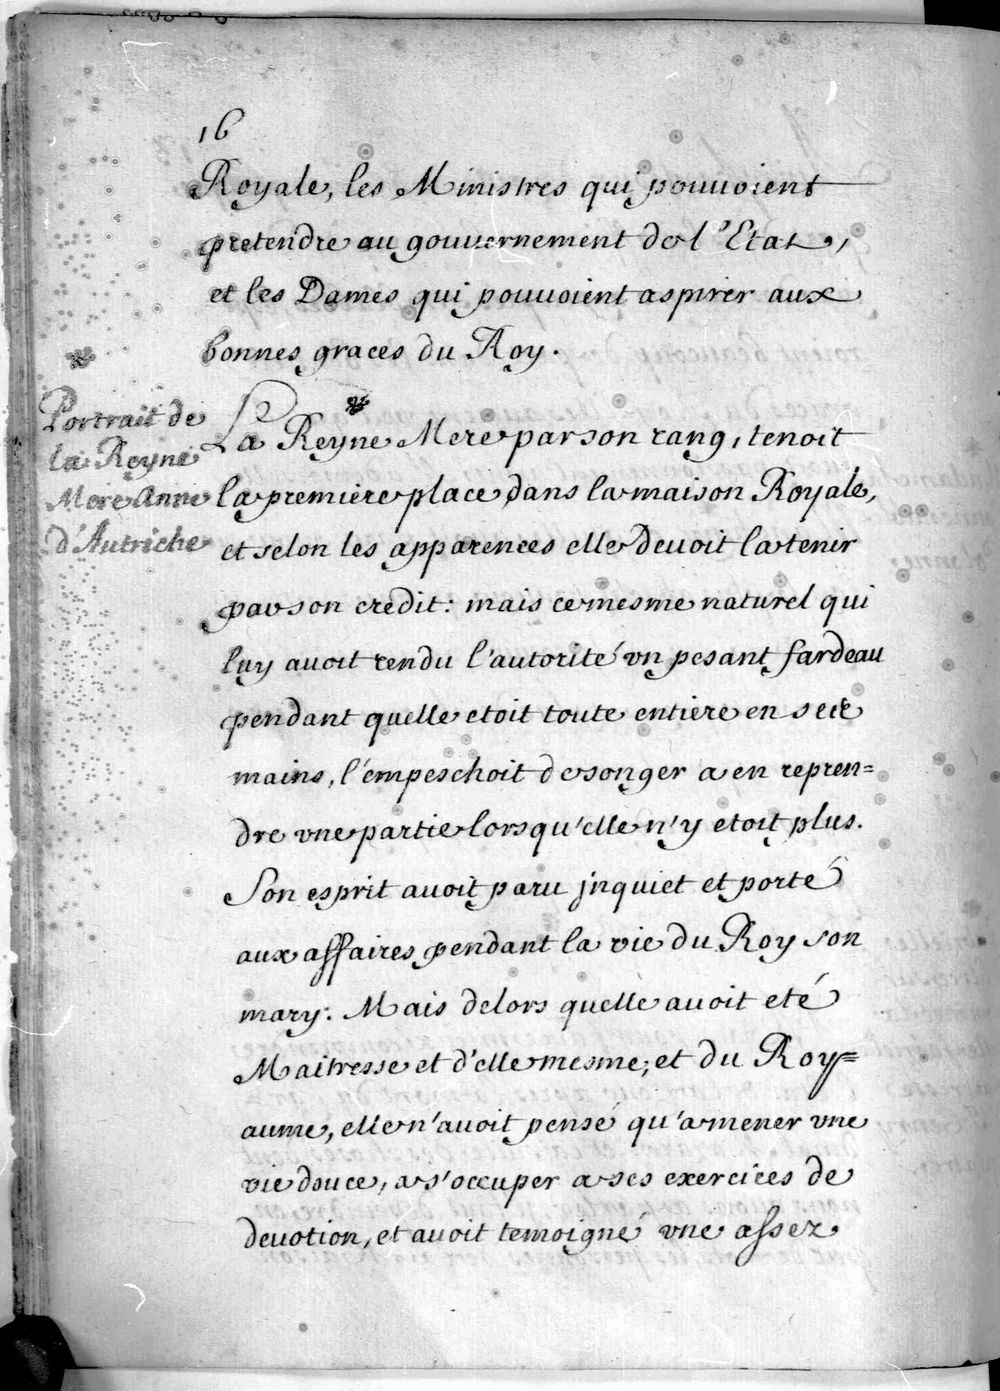 16
Royale, les Ministres qui pouuoient
pretendre au gouuernement de l'Etat,
et les Dames qui pouuoient aspirer aux
bonnes graces du Roy.
Portrait de
la Reyne
Mere Anne
d'Autriche
La Reyne Mere par son rang, tenoit
la premiere place dans la maison Royale,
et selon les apparences elle deuoit la tenir
par son credit: mais ce mesme naturel qui
luy auoit rendu l'autorité vn pesant fardeau
pendant quelle etoit toute entiere en ses
mains, l'empeschoit de songer a en repren=
dre vne partie lorsqu'elle n'y etoit plus.
Son esprit auoit paru jnquiet et porté
aux affaires pendant la vie du Roy son
mary: Mais delors quelle auoit eté
Maitresse et d'elle mesme, et du Roy=
aume, elle n'auoit pensé qu'a mener vne
vie douce, a s'occuper a ses exercices de
deuotion, et auoit temoigné vne assez